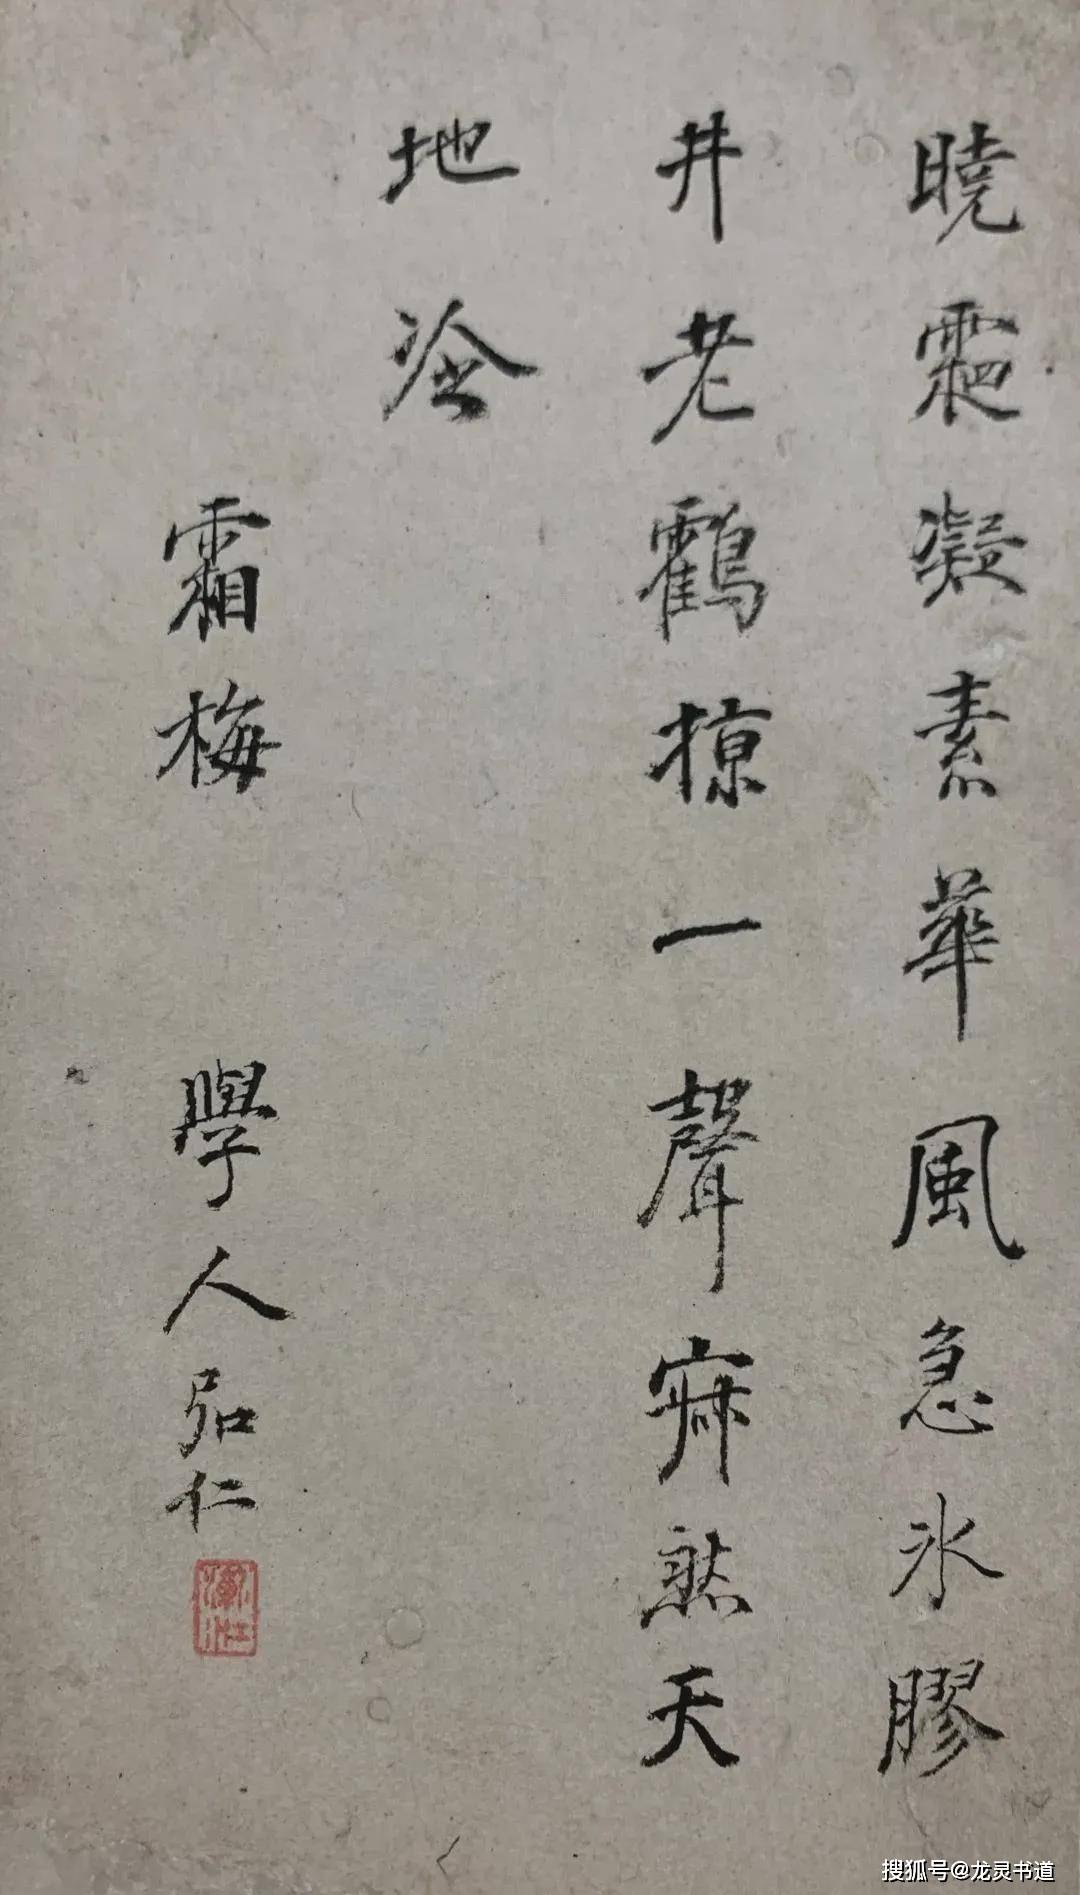 曉凝素華風急氷膠
井老鸖掠一聲寂然天
地冷
霜梅 學人弘仁
漸江
搜狐号@龙灵书道